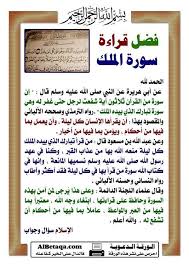 بسم الله الرحمن الرحيم
فضل قراءة
سورة الملك
الحمد لله
عن أبي هريرة عن النبي صلى الله عليه وسلم قال : « إن
سورة من القرآن ثلاثون آية شفعت لرجل حتى غفر له وهي
سورة تبارك الذي بيده الملك » . رواه الترمذي وصححه الألباني
والمقصود بهذا : أن يقرأها الإنسان كل ليلة ، وأن يعمل بما
فيها من أحكام ، ويؤمن بما فيها من أخبار .
عن عبد الله بن مسعود قال : من قرأ تبارك الذي بيده الملك
كل ليلة منعه الله بها من عذاب القبر ، وكنا في عهد
رسول الله صلى الله عليه وسلم نسميها المانعة ، وإنها في
كتاب الله سورة من قرأ بها في كل ليلة فقد أكثر وأطاب
رواه النسائي وحسنه الألباني
وقال علماء اللجنة الدائمة :
وعلى هذا يرجى لمن آمن بهذه
السورة وحافظ على قراءتها ، ابتغاء وجه الله ، معتبرا بما
فيها من العبر والمواعظ ، عاملا بما فيها من أحكام أن
تشفع له .
الإسلام سؤال وجواب
الورقة الدعوية
AlBetaqa.com